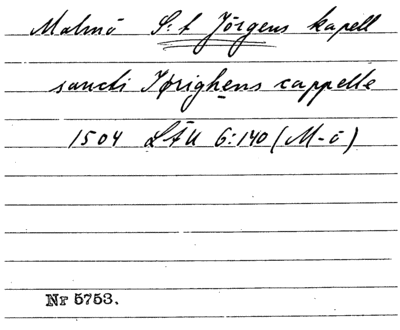 Malmö S:t Jörgens kapell
sancti Jørighens cappelle
1504 LÄU 6:140 (M-ö)
Nr 5753.